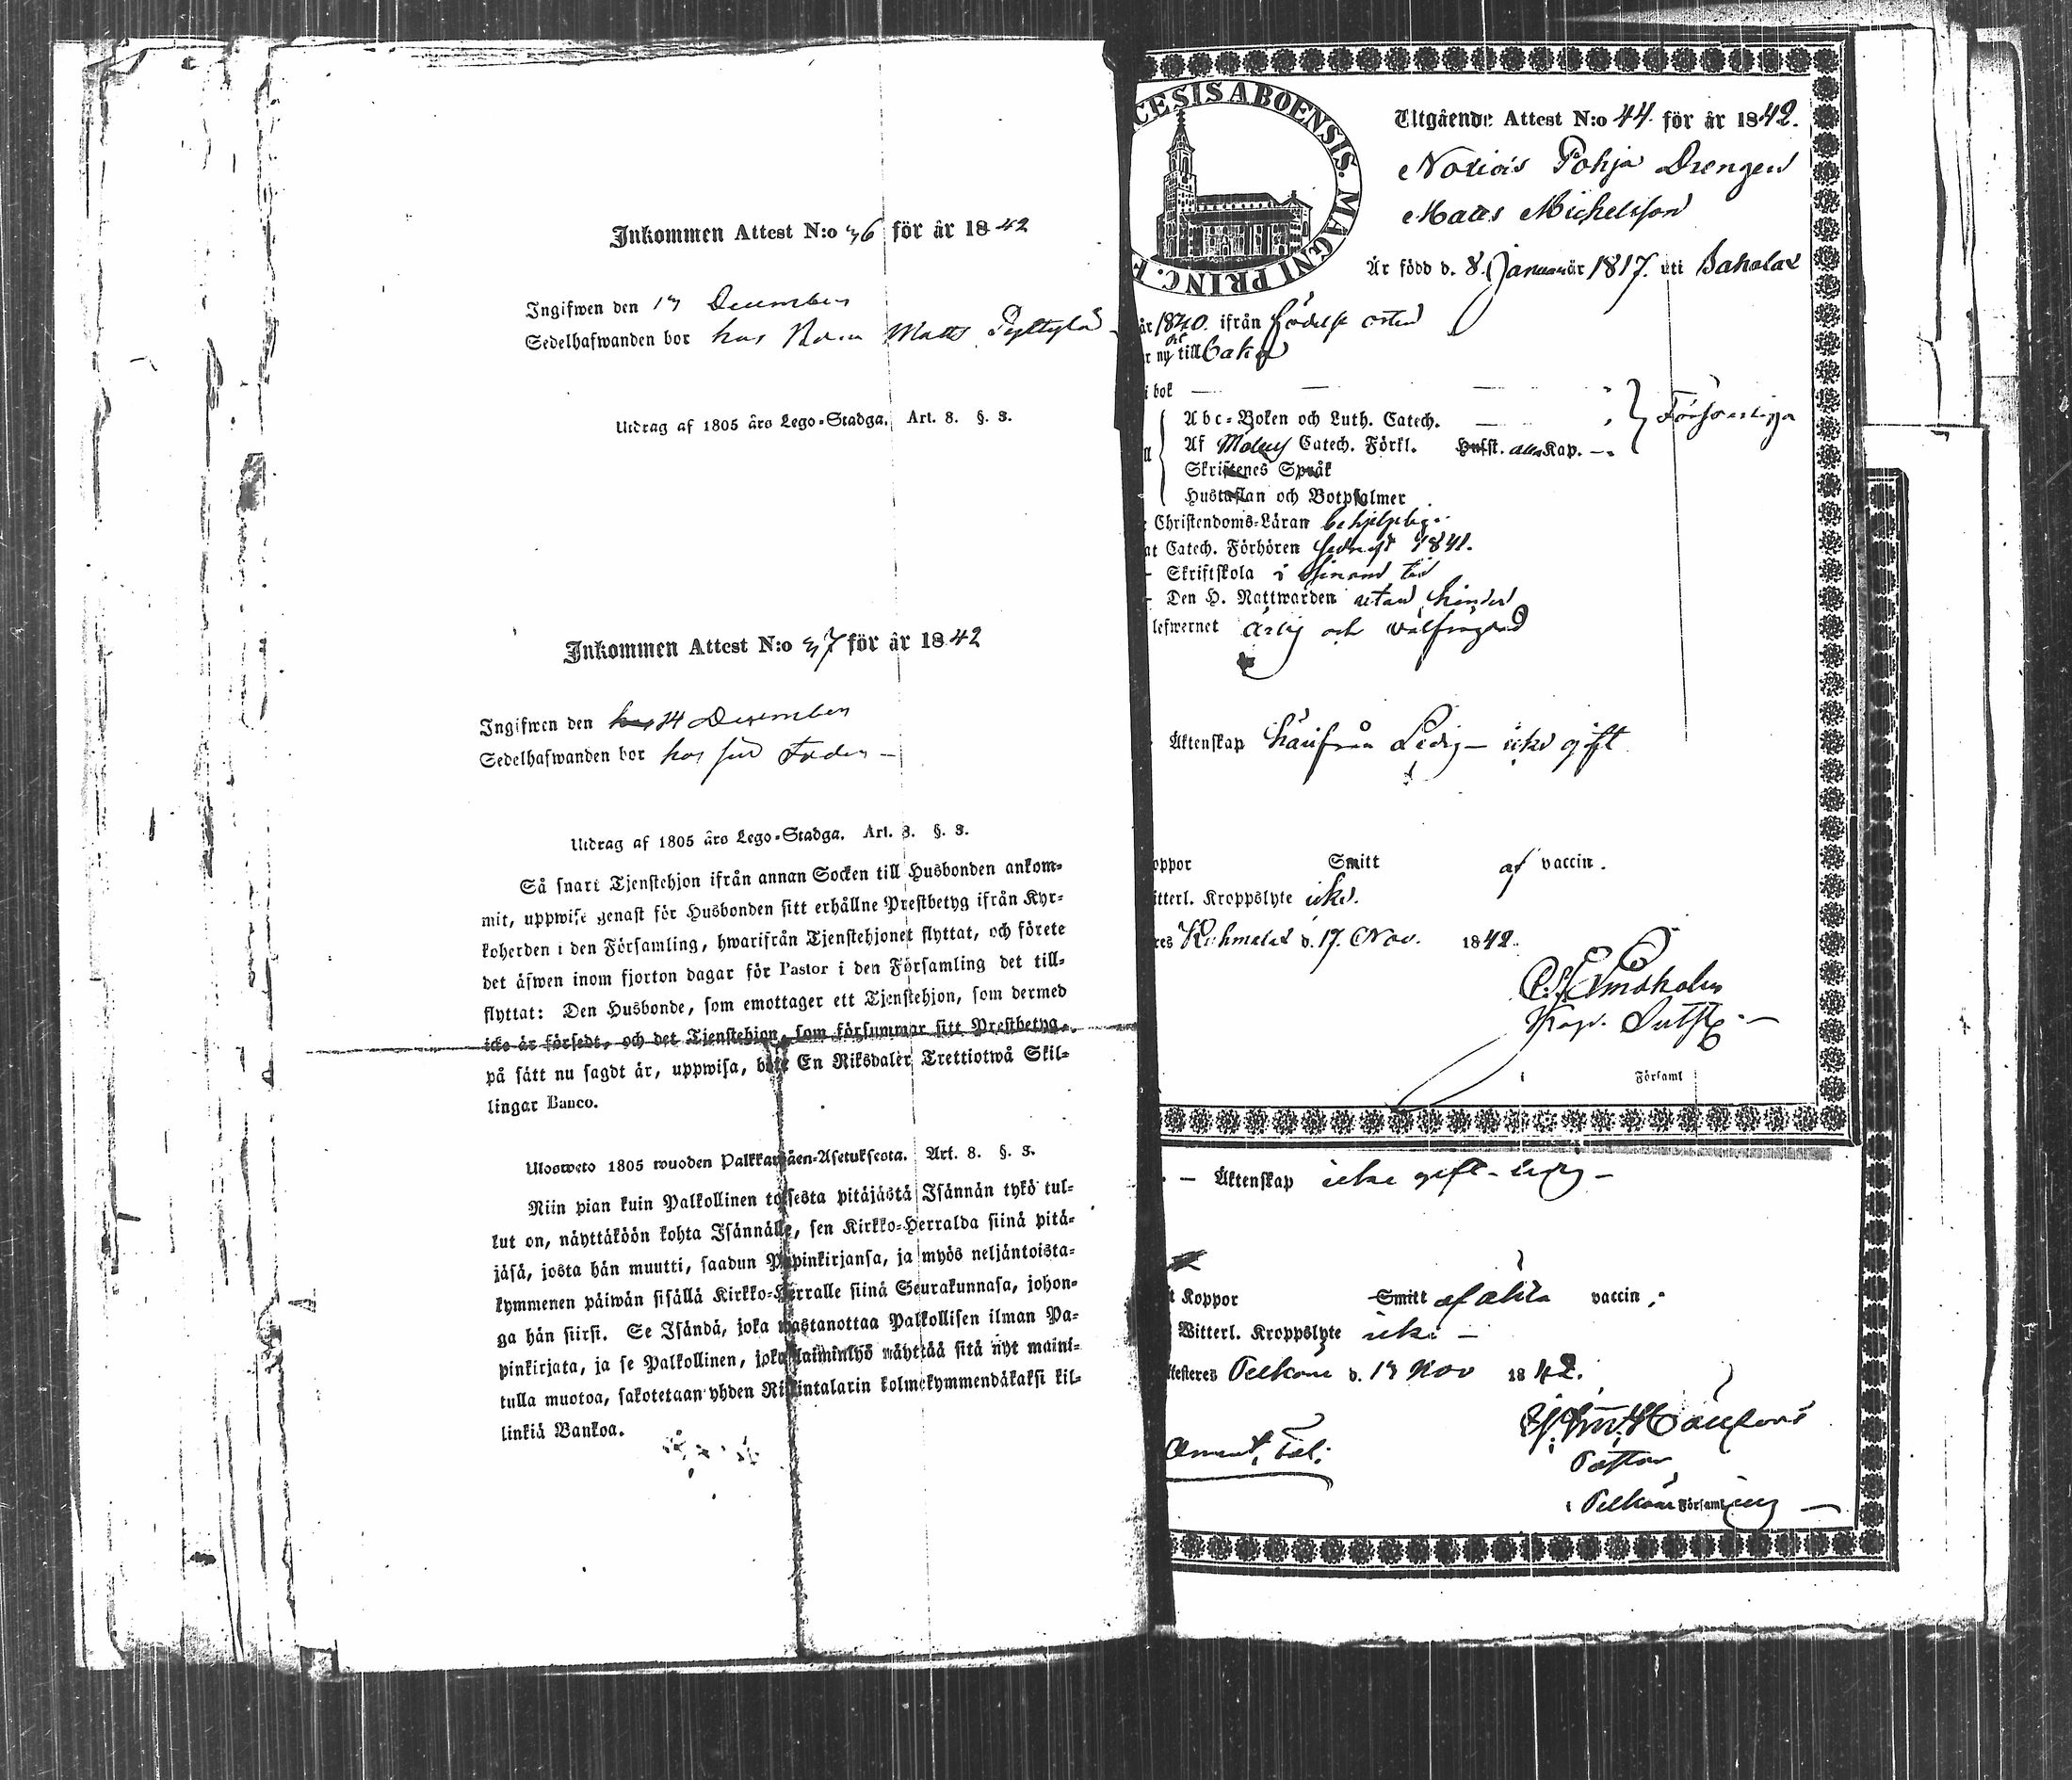 Inkommen Attest N:o 36 för år 1842
Ingifwen den 13 December
Sedelhafwanden bor hos Matts
Utdrag af 1805 års Lego-Stadga. Art. 8. §. 3.
Inkommen Attest N:o 37 för år 1842
Ingifwen den 14 December
Sedelhafwanden bor hos sin Fader —
Utdrag af 1805 års Lego-Stadga. Art. 8. §. 3.
Så snart Tjenstehjon ifrån annan Socken till Husbonden ankom-
mit, uppwise genast för Husbonden sitt erhållne Prestbetyg ifrån Kyr-
koherden i den Församling, hwarifrån Tjenstehjonet flyttat, och förete
det äfwen inom fjorton dagar för Pastor i den Församling det till-
flyttat: Den Husbonde, som emottager ett Tjenstehjon, som dermed
icke är försedt, och det Tjenstehjon, som försummar sitt Prestbetyg,
på sätt nu sagdt är, uppwisa, böte En Riksdaler Trettiotwå Skil-
lingar Banco.
Ulosweto 1805 wuoden Palkkawäen-Asetuksesta. Art. 8. §. 3.
Niin pian kuin Palkollinen toisesta pitäjästä Isännän tykö tul-
lut on, näyttäköön kohta Isännälle, sen Kirkko-Herralda siinä pitä-
jäsä, josta hän muutti, saadun Papinkirjansa, ja myös neljäntoista-
kymmenen päiwän sisällä Kirkko-Herralle siinä Seurakunnasa, johon-
ga hän siirsi. Se Isändä, joka wastanottaa Palkollisen ilman Pa-
pinkirjata, ja se Palkollinen, joka laiminlyö näyttää sitä nyt maini-
tulla muotoa, sakotetaan yhden Riikintalarin kolmekymmendäkaksi kil-
linkiä Bankoa.
CESIS ABOENSIS. MAGNI PRINC. F
Utgående Attest N:o 44 för år 1842.
Pohja Drengen
Matts Michelsson
Är född d. 8. Januari är 1817. uti Sahalax
år 1840. ifrån födelse orten
r ny till baka
i bok — — — -
Abc-Boken och Luth. Catech. —
Försvarliga
Af Catech. Förkl. Hufst. alla Kap. —
Skriftenes Språk
Hustaflan och Botpsalmer
Christendoms-Läran behjelplig
at Catech. Förhören sednast 1841.
- Skriftskola i sinom tid
- Den H. Nattwarden utan hinder
lefwernet ärlig och välfrägdad
Äktenskap härifrån Ledig — icke gift
oppor Smitt af vaccin.
itterl. Kroppslyte icke.
res Kuhmalax d. 17. Nov. 1842.
Församl
— Äktenskap icke gift - ledig —
t Koppor Smitt af äkta vaccin.
Witterl. Kroppslyte icke —
ttesteres Pelkäne d. 13 Nov 1842.
Pastor
i Pelkäne Församling —